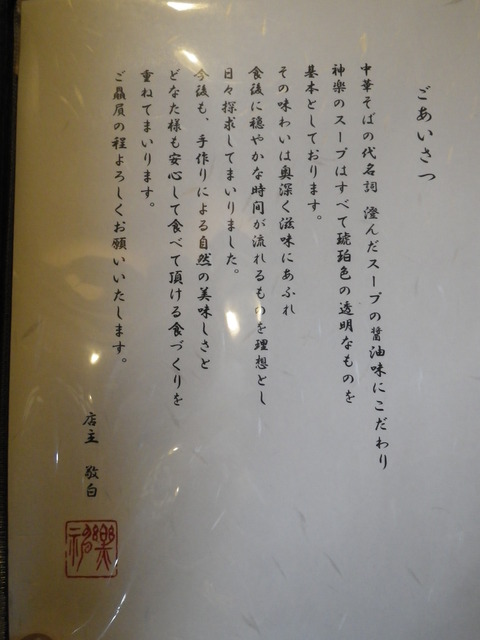 ごあいさつ
中華そばの代名詞 澄んだスープの醤油味にこだわり
神楽のスープはすべて琥珀色の透明なものを
基本としております。
その味わいは奥深く滋味にあふれ
食後に穏やかな時間が流れるものを理想とし
日々探求してまいりました。
今後も、手作りによる自然の美味しさと
どなた様も安心して食べて頂ける食づくりを
重ねてまいります。
ご贔屓の程よろしくお願いいたします。
店主 敬白
神樂